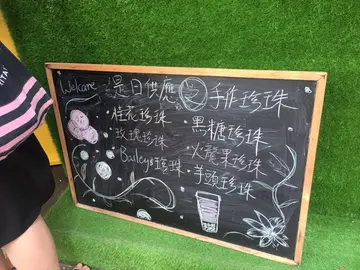 Welcome
是日供應之手作珍珠
·桂花珍珠 ·黑糖珍珠
·玫瑰珍珠 ·火龍果珍珠
·Baileys珍珠 ·芋頭珍珠